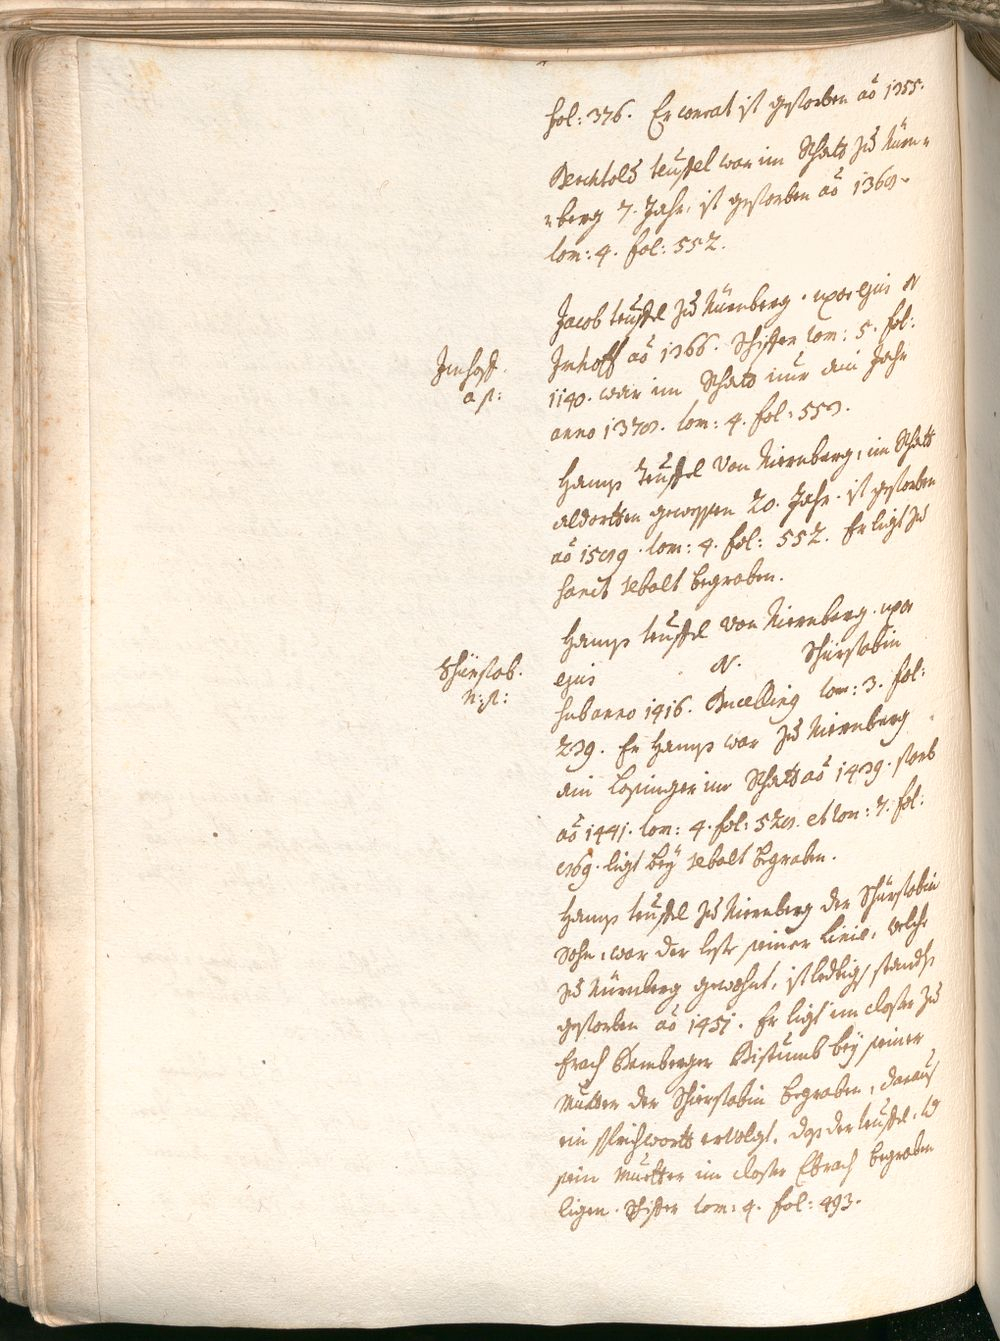 fol: 376. Er conrat ist gestorben aō 1355.
Berchtold teuffel war im Rhatt zu Nürn-
-berg 7. Jahr, ist gestorben aō
tom: 4. fol: 552.
Jacob teuffel zu Nürnberg. uxor ejus N
Imhoff aō 1366. Schiffer tom: 5. fol:
1140. war im Rhatt nur ain Jahr
anno tom: 4. fol:
Imhoff.
a p:
Hanns teuffel von Niernberg, im Rhatt
aldortten gewessen 20. Jahr. ist gestorben
aō tom: 4. fol: 552. Er ligt zu
sanct sebalt begraben.
Hanns teuffel von Niernberg. uxor
ejus N. Schürstabin
sub anno 1416. Bucelling tom: 3. fol:
239. Er Hanns war zu Niernberg
ain Losunger im Rhatt aō 1439. starb
aō 1441. tom: 4. fol: et tom: 7. fol:
ligt bey sebalt begraben.
Schürstab.
n: p:
Hanns teuffel zu Niernberg der Schürstabin
Sohn, war der leste seiner linie, welche
zu Nürnberg gewohnt, ist ledtig standts
gestorben aō 1451. Er ligt im closter zu
Erach Bamberger Bistumb bey seiner
Mutter der Schürstabin begraben, daraus
ein sprichwortt ervolgt, das der teuffel, vnd
sein Muetter im closter Ebrach begraben
ligen. Schiffer tom: 4. fol: 493.